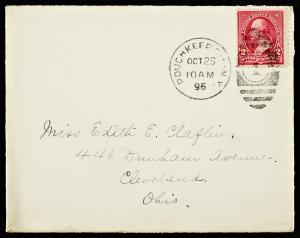 POUGHKEEPSIE N.Y.
OCT 26
10 AM
96
Miss Edith E. Claflin.
446 Dunham Avenue.
Cleveland.
Ohio.